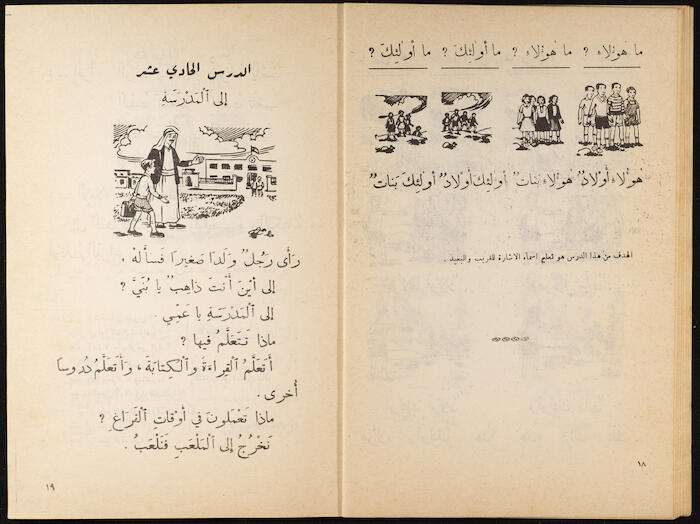 ما هٰؤلاءِ ؟ ما هٰؤلاءِ ؟ ما أُولٰئِكَ ؟ ما أُولٰئِكَ ؟
هٰؤلاءِ أَوْلادٌ هٰؤلاءِ بَناتٌ أُولٰئِكَ أَوْلادٌ أُولٰئِكَ بَناتٌ
الهدف من هذا الدرس هو تعليم اسماء الاشارة للقريب والبعيد .
١٨
الدرس الحادي عشر
إلى ٱلْمَدْرَسَةِ
رَأَى رَجُلٌ وَلَدًا صَغيرًا فَسَأَلَهُ .
إلى أَيْنَ أَنْتَ ذاهِبٌ يا بُنَيَّ ؟
إلى ٱلْمَدْرَسَةِ يا عَمّي .
ماذا تَتَعَلَّمُ فيها ؟
أَتَعَلَّمُ ٱلْقِراءَةَ وَٱلْكِتابَةَ ، وَأَتَعَلَّمُ دُروسًا
أُخْرى .
ماذا تَعْمَلونَ في أَوْقاتِ ٱلْفَراغِ ؟
نَخْرُجُ إلى ٱلْمَلْعَبِ فَنَلْعَبُ .
١٩